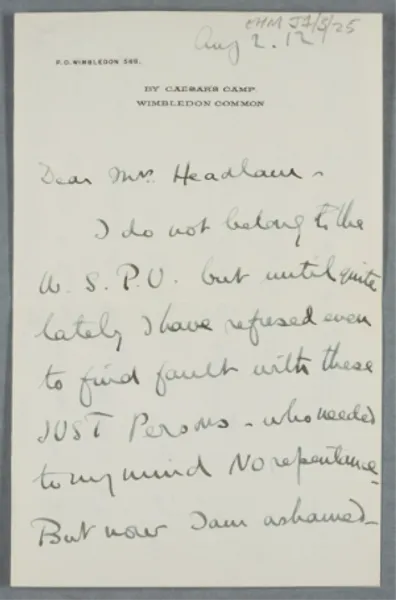 CHM J7/5/25
Aug 2. 12
P.O. WIMBLEDON 580.
BY CAESARS CAMP.
WIMBLEDON COMMON
Dear Mrs. Headlam -
I do not belong to the
W. S. P. U. but until quite
lately I have refused even
to find fault with these
JUST Persons - who needed
to my mind No repentance -
But now I am ashamed -